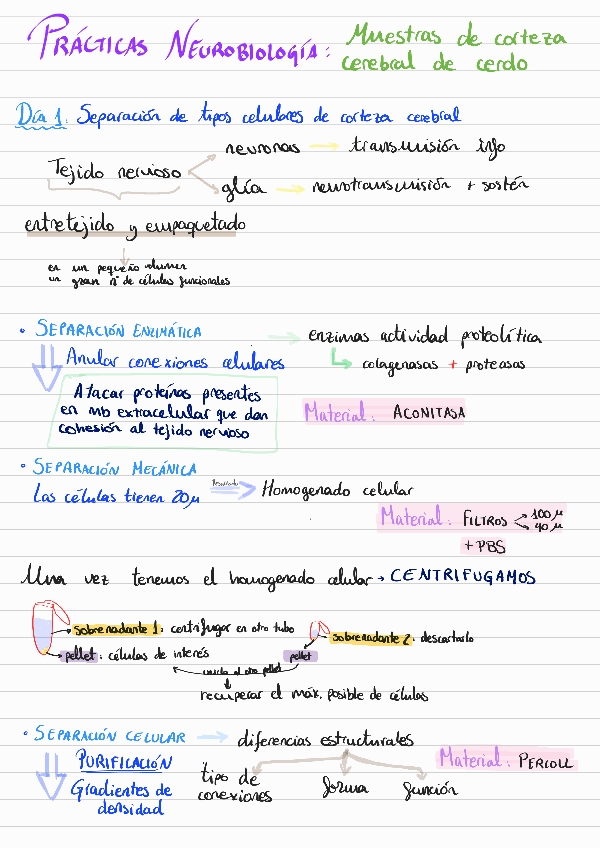 PRÁCTICAS NEUROBIOLOGÍA: Muestras de corteza
cerebral de cerdo
Día 1. Separación de tipos celulares de corteza cerebral
Tejido nervioso
neuronas → transmisión info
glía → neurotransmisión + sostén
entretejido y empaquetado
en un pequeño volumen
un gran nº de células funcionales
• SEPARACIÓN ENZIMÁTICA → enzimas actividad proteolítica
Anular conexiones celulares
colagenasas + proteasas
Atacar proteínas presentes
en mb extracelular que dan
cohesión al tejido nervioso
Material: ACONITASA
• SEPARACIÓN MECÁNICA
Las células tienen 20µ → Homogenado celular
Material: FILTROS 100 µ
40 µ
+ PBS
Una vez tenemos el homogenado celular → CENTRIFUGAMOS
sobrenadante 1: centrifugar en otro tubo
pellet: células de interés
pellet
sobrenadante 2: descartarlo
unirlo al otro pellet
recuperar el máx. posible de células
• SEPARACIÓN CELULAR → diferencias estructurales
PURIFICACIÓN
Gradientes de
densidad
tipo de
conexiones
forma
función
Material: PERCOLL